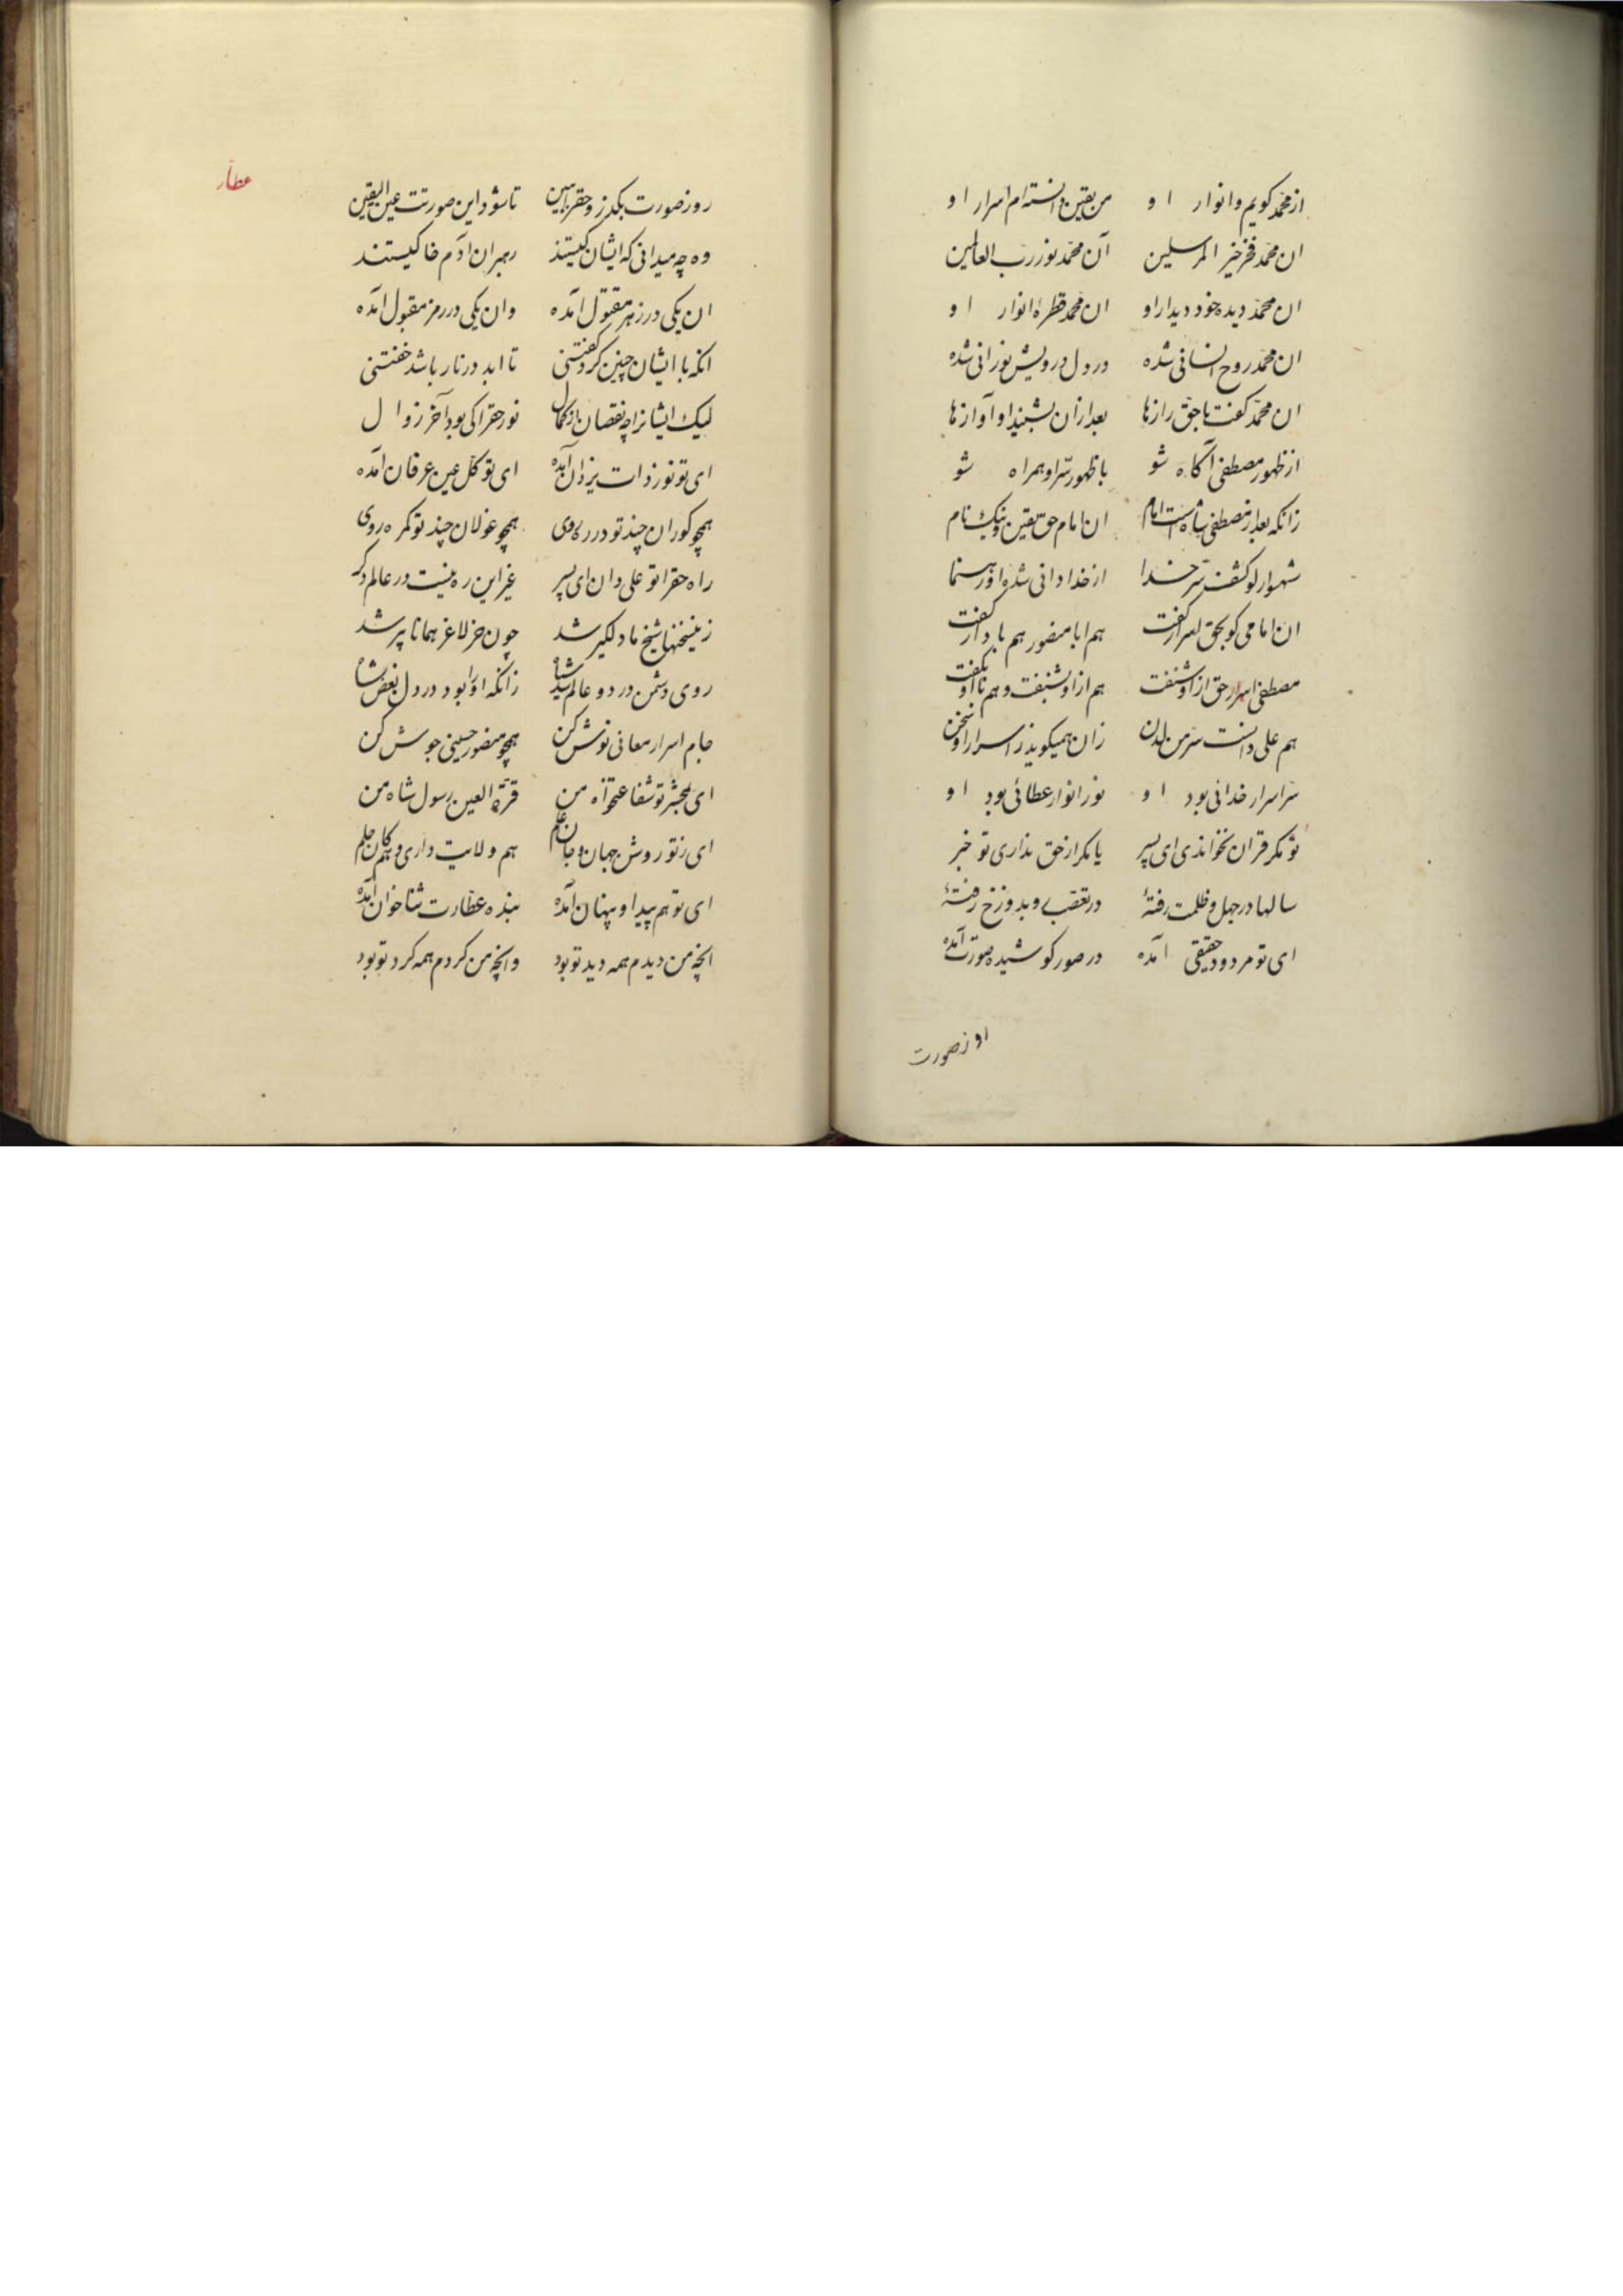 از محمد کویم وانوار او من یقین دانسته‌ام اسرار او
ان محمد فخر خیر المرسلین آن محمد نور رب العالمین
ان محمد دیده خود دیدار او ان محمد قطرهٔ انوار او
ان محمد روح انسانی شده در دل درویش نورانی شده
ان محمد کفت با حق رازها بعد ازان بشنید او آوازها
از ظهور مصطفی آکاه شو با ظهور سر او همراه شو
زانکه بعد از مصطفی شاهست امام ان امام حق یقین و نیک نام
شهسوار لو کشف سر خدا از خدا دانی شده او رهنما
ان امامی کو بحق اسرار کفت هم ابا منصور هم با دار کفت
مصطفی اسرار حق از او شنفت هم از او شنفت و هم با او بکفت
هم علی دانست سر من لدن زان همیکوید ز اسرار او سخن
سر اسرار خدائی بود او نور انوار عطائی بود او
تو مکر قران نخواندی ای پسر یا مکر از حق نداری تو خبر
سالها در جهل و ظلمت رفتهٔ در تعصب و بدوزخ رفتهٔ
ای تو مردود حقیقی آمده در صور کوشیده صورت آمده
او ز صورت
عطار
رو ز صورت بکذر و حقرا ببین تا شود این صورتت عین الیقین
وه چه میدانی که ایشان کیستند رهبران ادم خاکیستند
ان یکی در زهر مقتول آمده وان یکی در رمز مقبول آمده
انکه با ایشان چنین کرد کفتنی تا ابد در نار باشد خفتنی
لیک ایشانرا چه نقصان از کمال نور حقرا کی بود آخر زوال
ای تو نور ذات یزدان آمده ای تو کل عین عرفان آمده
همچو کوران چند تو در ره روی همچو غولان چند تو کمره روی
راه حقرا تو علی دان ای پسر غیر این ره نیست در عالم دکر
زینسخنها شیخ ما دلکیر شد چون خر لاغر همانا پیر شد
روی دشمن در دو عالم شد سیاه زانکه او را بود در دل بغض شاه
جام اسرار معانی نوش کن همچو منصور حسینی جوش کن
ای بمحشر تو شفاعتخواه من قرة العین رسول شاه من
ای ز تو روشن جهان و جان علم هم ولایت داری و هم کان حلم
ای تو هم پیدا و پنهان آمده بنده عطارت ثنا خوان آمده
انچه من دیدم همه دید تو بود وانچه من کردم همه کرد تو بود